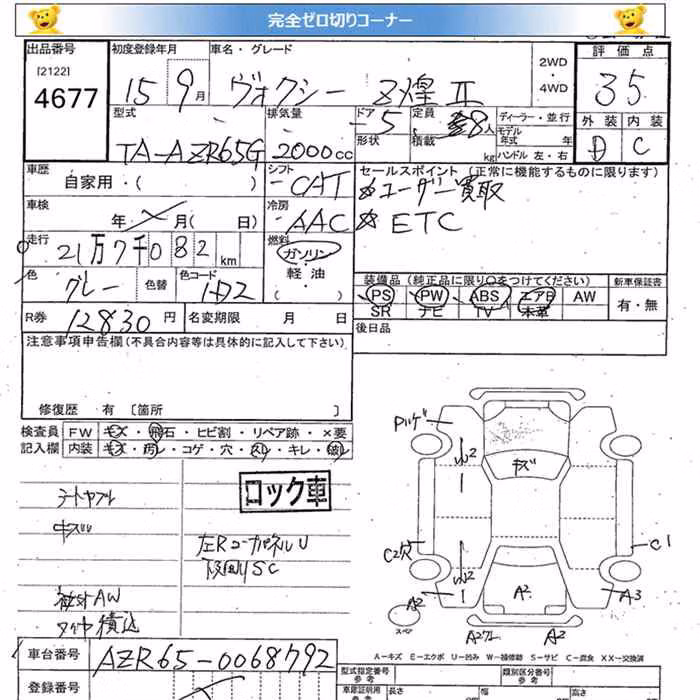 完全ゼロ切りコーナー
出品番号 初度登録年月 車名・グレード 評価点
[2122]
4677 15 9月 ヴォクシー Z煌Ⅱ 2WD・4WD 35
型式 排気量 ドア 定員 ディーラー・並行 外装 内装
TA-AZR65G 2000cc 5 8人 形状 積載 kg モデル年式 年 ハンドル 左・右 D C
車歴 シフト セールスポイント (正常に機能するものに限ります)
自家用・( ) CAT ☆ユーザー買取
車検 冷房
年 月( 日) AAC ☆ETC
走行 燃料
21万7千082km ガソリン
色 色替 色コード 軽油
グレー 1D2 ( )
装備品 (純正品に限り○をつけてください) 新車保証書
PS PW ABS エアB AW 有・無
SR ナビ TV 本革
R券 12830円 名変期限 月 日 後日品
注意事項申告欄(不具合内容等は具体的に記入して下さい)
修復歴 有 〔箇所 〕
検査員 FW キズ・飛石・ヒビ割・リペア跡・×要
記入欄 内装 キズ・汚レ・コゲ・穴・スレ・キレ・破レ
ロック車
左RコーナーパネルU
下回りSC
社外AW
タイヤ積込
キズ
W2
C2穴
W2
C1
A2
A2
A3
スペア
A2
A-キズ E-エクボ U-凹み W-補修跡 S-サビ C-腐食 XX-交換済
車台番号 AZR65-0068792
型式指定番号 参考 類別区分番号 参考
登録番号 車庫証明用 参考 長さ 幅 高さ